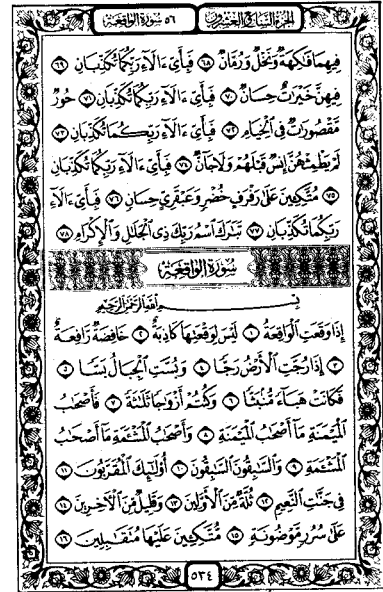 الجزء السابع والعشرون ٥٦ سورة الواقعة
فِيهِمَا فَٰكِهَةٌ وَنَخْلٌ وَرُمَّانٌ ٦٨ فَبِأَىِّ ءَالَآءِ رَبِّكُمَا تُكَذِّبَانِ ٦٩
فِيهِنَّ خَيْرَٰتٌ حِسَانٌ ٧٠ فَبِأَىِّ ءَالَآءِ رَبِّكُمَا تُكَذِّبَانِ ٧١ حُورٌ
مَّقْصُورَٰتٌ فِى ٱلْخِيَامِ ٧٢ فَبِأَىِّ ءَالَآءِ رَبِّكُمَا تُكَذِّبَانِ ٧٣
لَمْ يَطْمِثْهُنَّ إِنسٌ قَبْلَهُمْ وَلَا جَآنٌّ ٧٤ فَبِأَىِّ ءَالَآءِ رَبِّكُمَا تُكَذِّبَانِ
٧٥ مُتَّكِـِٔينَ عَلَىٰ رَفْرَفٍ خُضْرٍ وَعَبْقَرِىٍّ حِسَانٍ ٧٦ فَبِأَىِّ ءَالَآءِ
رَبِّكُمَا تُكَذِّبَانِ ٧٧ تَبَٰرَكَ ٱسْمُ رَبِّكَ ذِى ٱلْجَلَٰلِ وَٱلْإِكْرَامِ ٧٨
سورة الواقعة
بِسْمِ ٱللَّهِ ٱلرَّحْمَٰنِ ٱلرَّحِيمِ
إِذَا وَقَعَتِ ٱلْوَاقِعَةُ ١ لَيْسَ لِوَقْعَتِهَا كَاذِبَةٌ ٢ خَافِضَةٌ رَّافِعَةٌ
٣ إِذَا رُجَّتِ ٱلْأَرْضُ رَجًّا ٤ وَبُسَّتِ ٱلْجِبَالُ بَسًّا ٥
فَكَانَتْ هَبَآءً مُّنۢبَثًّا ٦ وَكُنتُمْ أَزْوَٰجًا ثَلَٰثَةً ٧ فَأَصْحَٰبُ
ٱلْمَيْمَنَةِ مَآ أَصْحَٰبُ ٱلْمَيْمَنَةِ ٨ وَأَصْحَٰبُ ٱلْمَشْـَٔمَةِ مَآ أَصْحَٰبُ
ٱلْمَشْـَٔمَةِ ٩ وَٱلسَّٰبِقُونَ ٱلسَّٰبِقُونَ ١٠ أُو۟لَٰٓئِكَ ٱلْمُقَرَّبُونَ ١١
فِى جَنَّٰتِ ٱلنَّعِيمِ ١٢ ثُلَّةٌ مِّنَ ٱلْأَوَّلِينَ ١٣ وَقَلِيلٌ مِّنَ ٱلْءَاخِرِينَ ١٤
عَلَىٰ سُرُرٍ مَّوْضُونَةٍ ١٥ مُّتَّكِـِٔينَ عَلَيْهَا مُتَقَٰبِلِينَ ١٦
٥٣٤